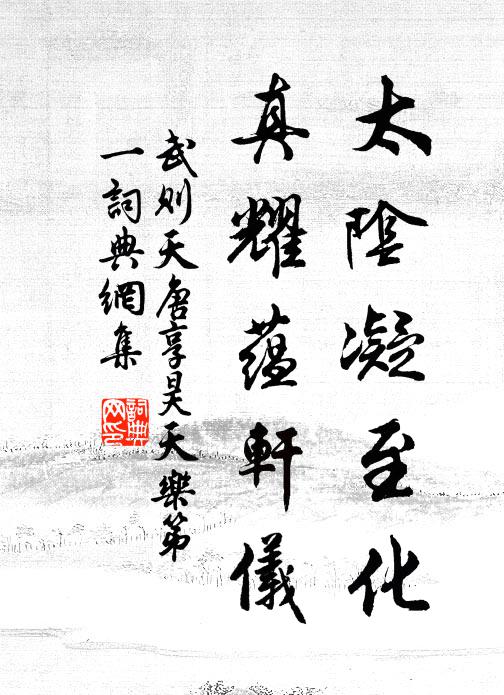 太陰凝至化
真耀蘊軒儀
武則天唐享昊天樂第
一詞典網集
詞典網印